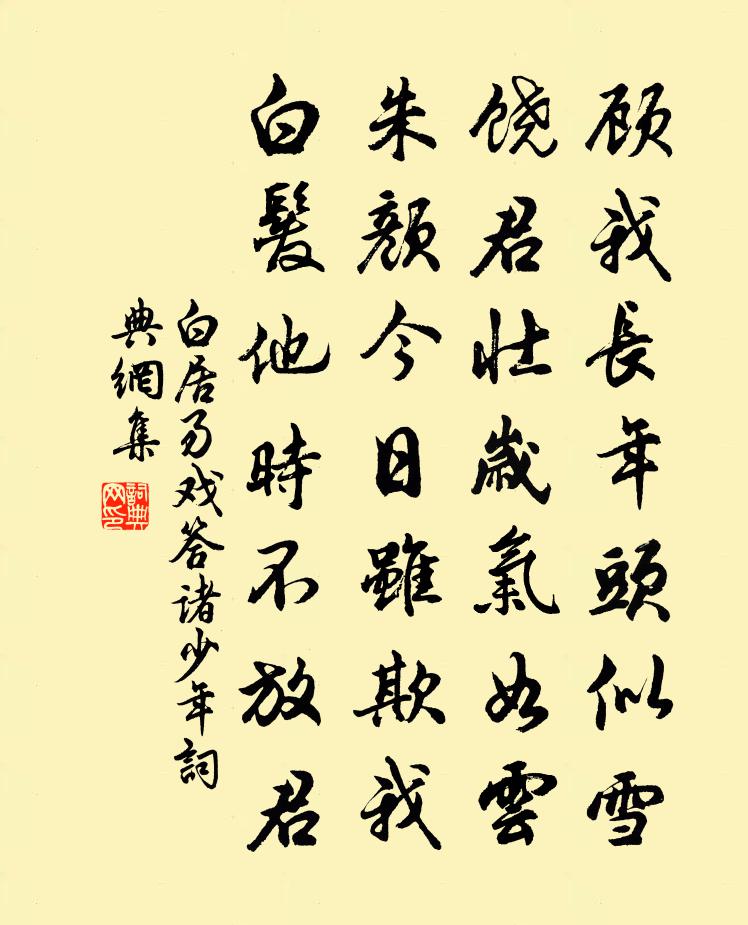 顾我長年頭似雪
饶君壮歲氣如雲
朱颜今日雖欺我
白髮他時不放君
白居易戏答诸少年詞
典網集
詞典网印